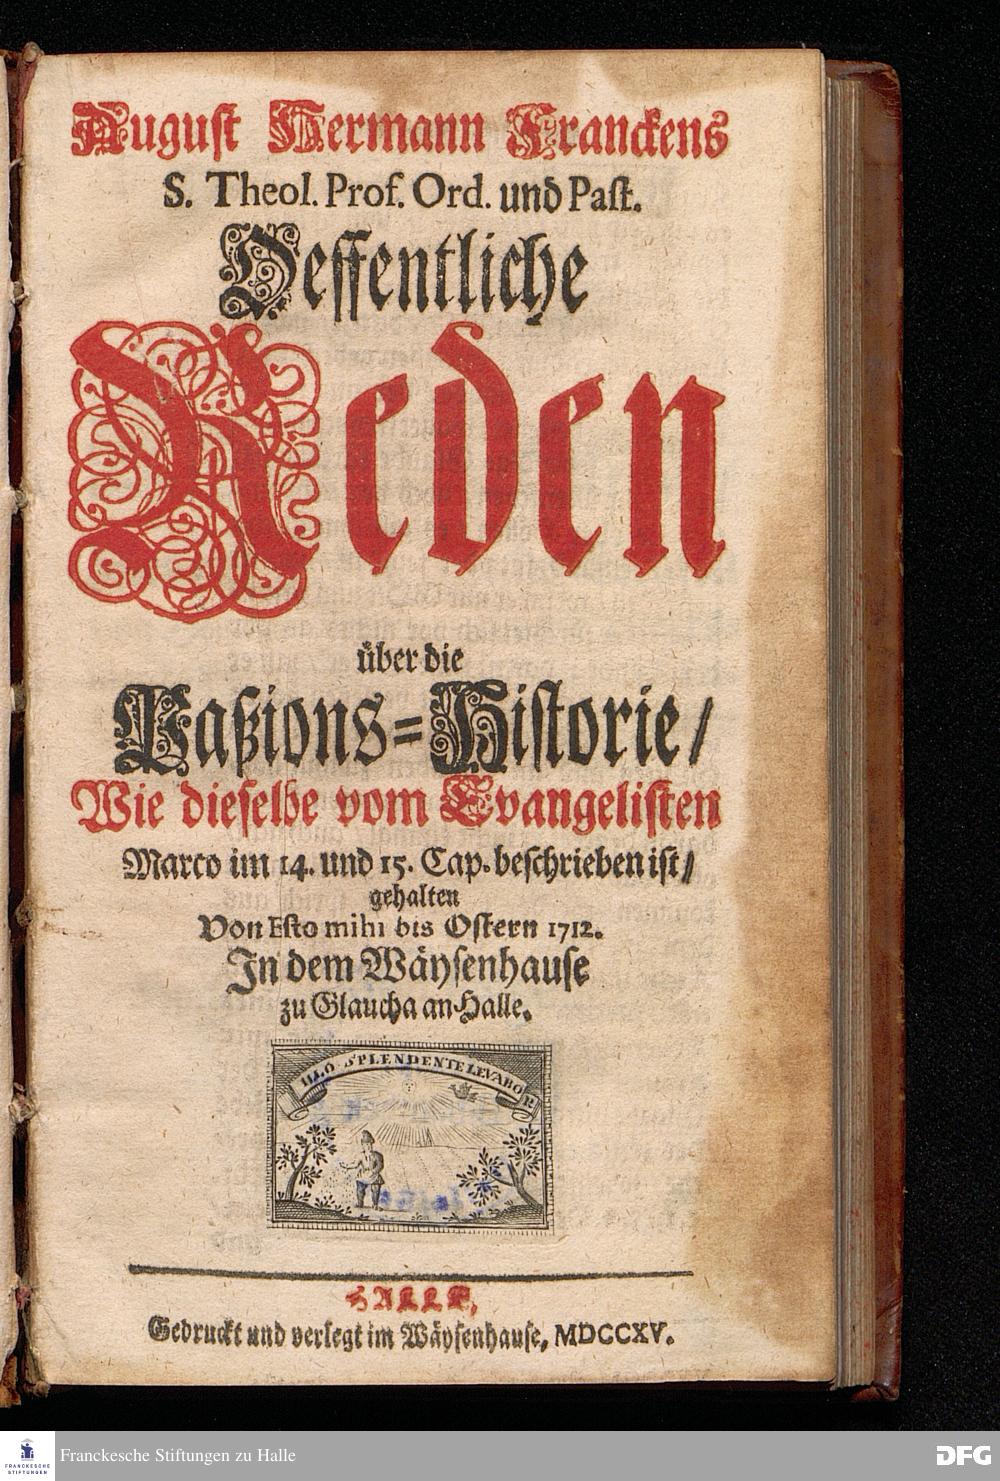 August Hermann Franckens
S. Theol. Prof. Ord. und Past.
Oeffentliche
Reden
über die
Paßions=Historie/
Wie dieselbe vom Evangelisten
Marco im 14. und 15. Cap. beschrieben ist/
gehalten
Von Esto mihi bis Ostern 1712.
In dem Wäysenhause
zu Glaucha an Halle.
ILLO SPLENDENTE LEVABOR
HALLE,
Gedruckt und verlegt im Wäysenhause, MDCCXV.
FRANCKESCHE
STIFTUNGEN
Franckesche Stiftungen zu Halle
DFG